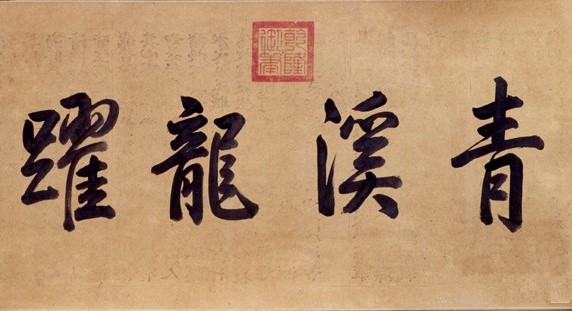 乾隆御筆
青溪龍躍